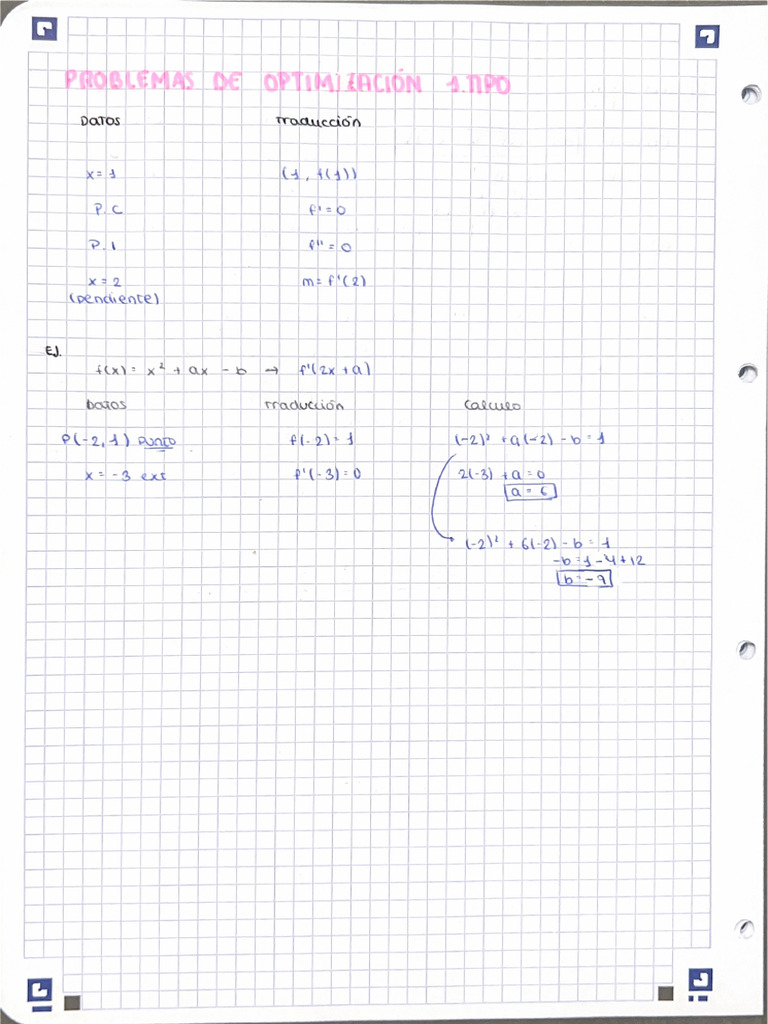 PROBLEMAS DE OPTIMIZACIÓN 1.TIPO
DATOS Traducción
x = 1 (1, f(1))
P.C f' = 0
P.I f'' = 0
x = 2 m = f'(2)
(pendiente)
EJ.
f(x) = x² + ax - b → f'(2x + a)
DATOS Traducción Calculo
P(-2, 1) PUNTO f(-2) = 1 (-2)² + a(-2) - b = 1
x = -3 ext f'(-3) = 0 2(-3) + a = 0
a = 6
(-2)² + 6(-2) - b = 1
-b = 1 - 4 + 12
b = -9